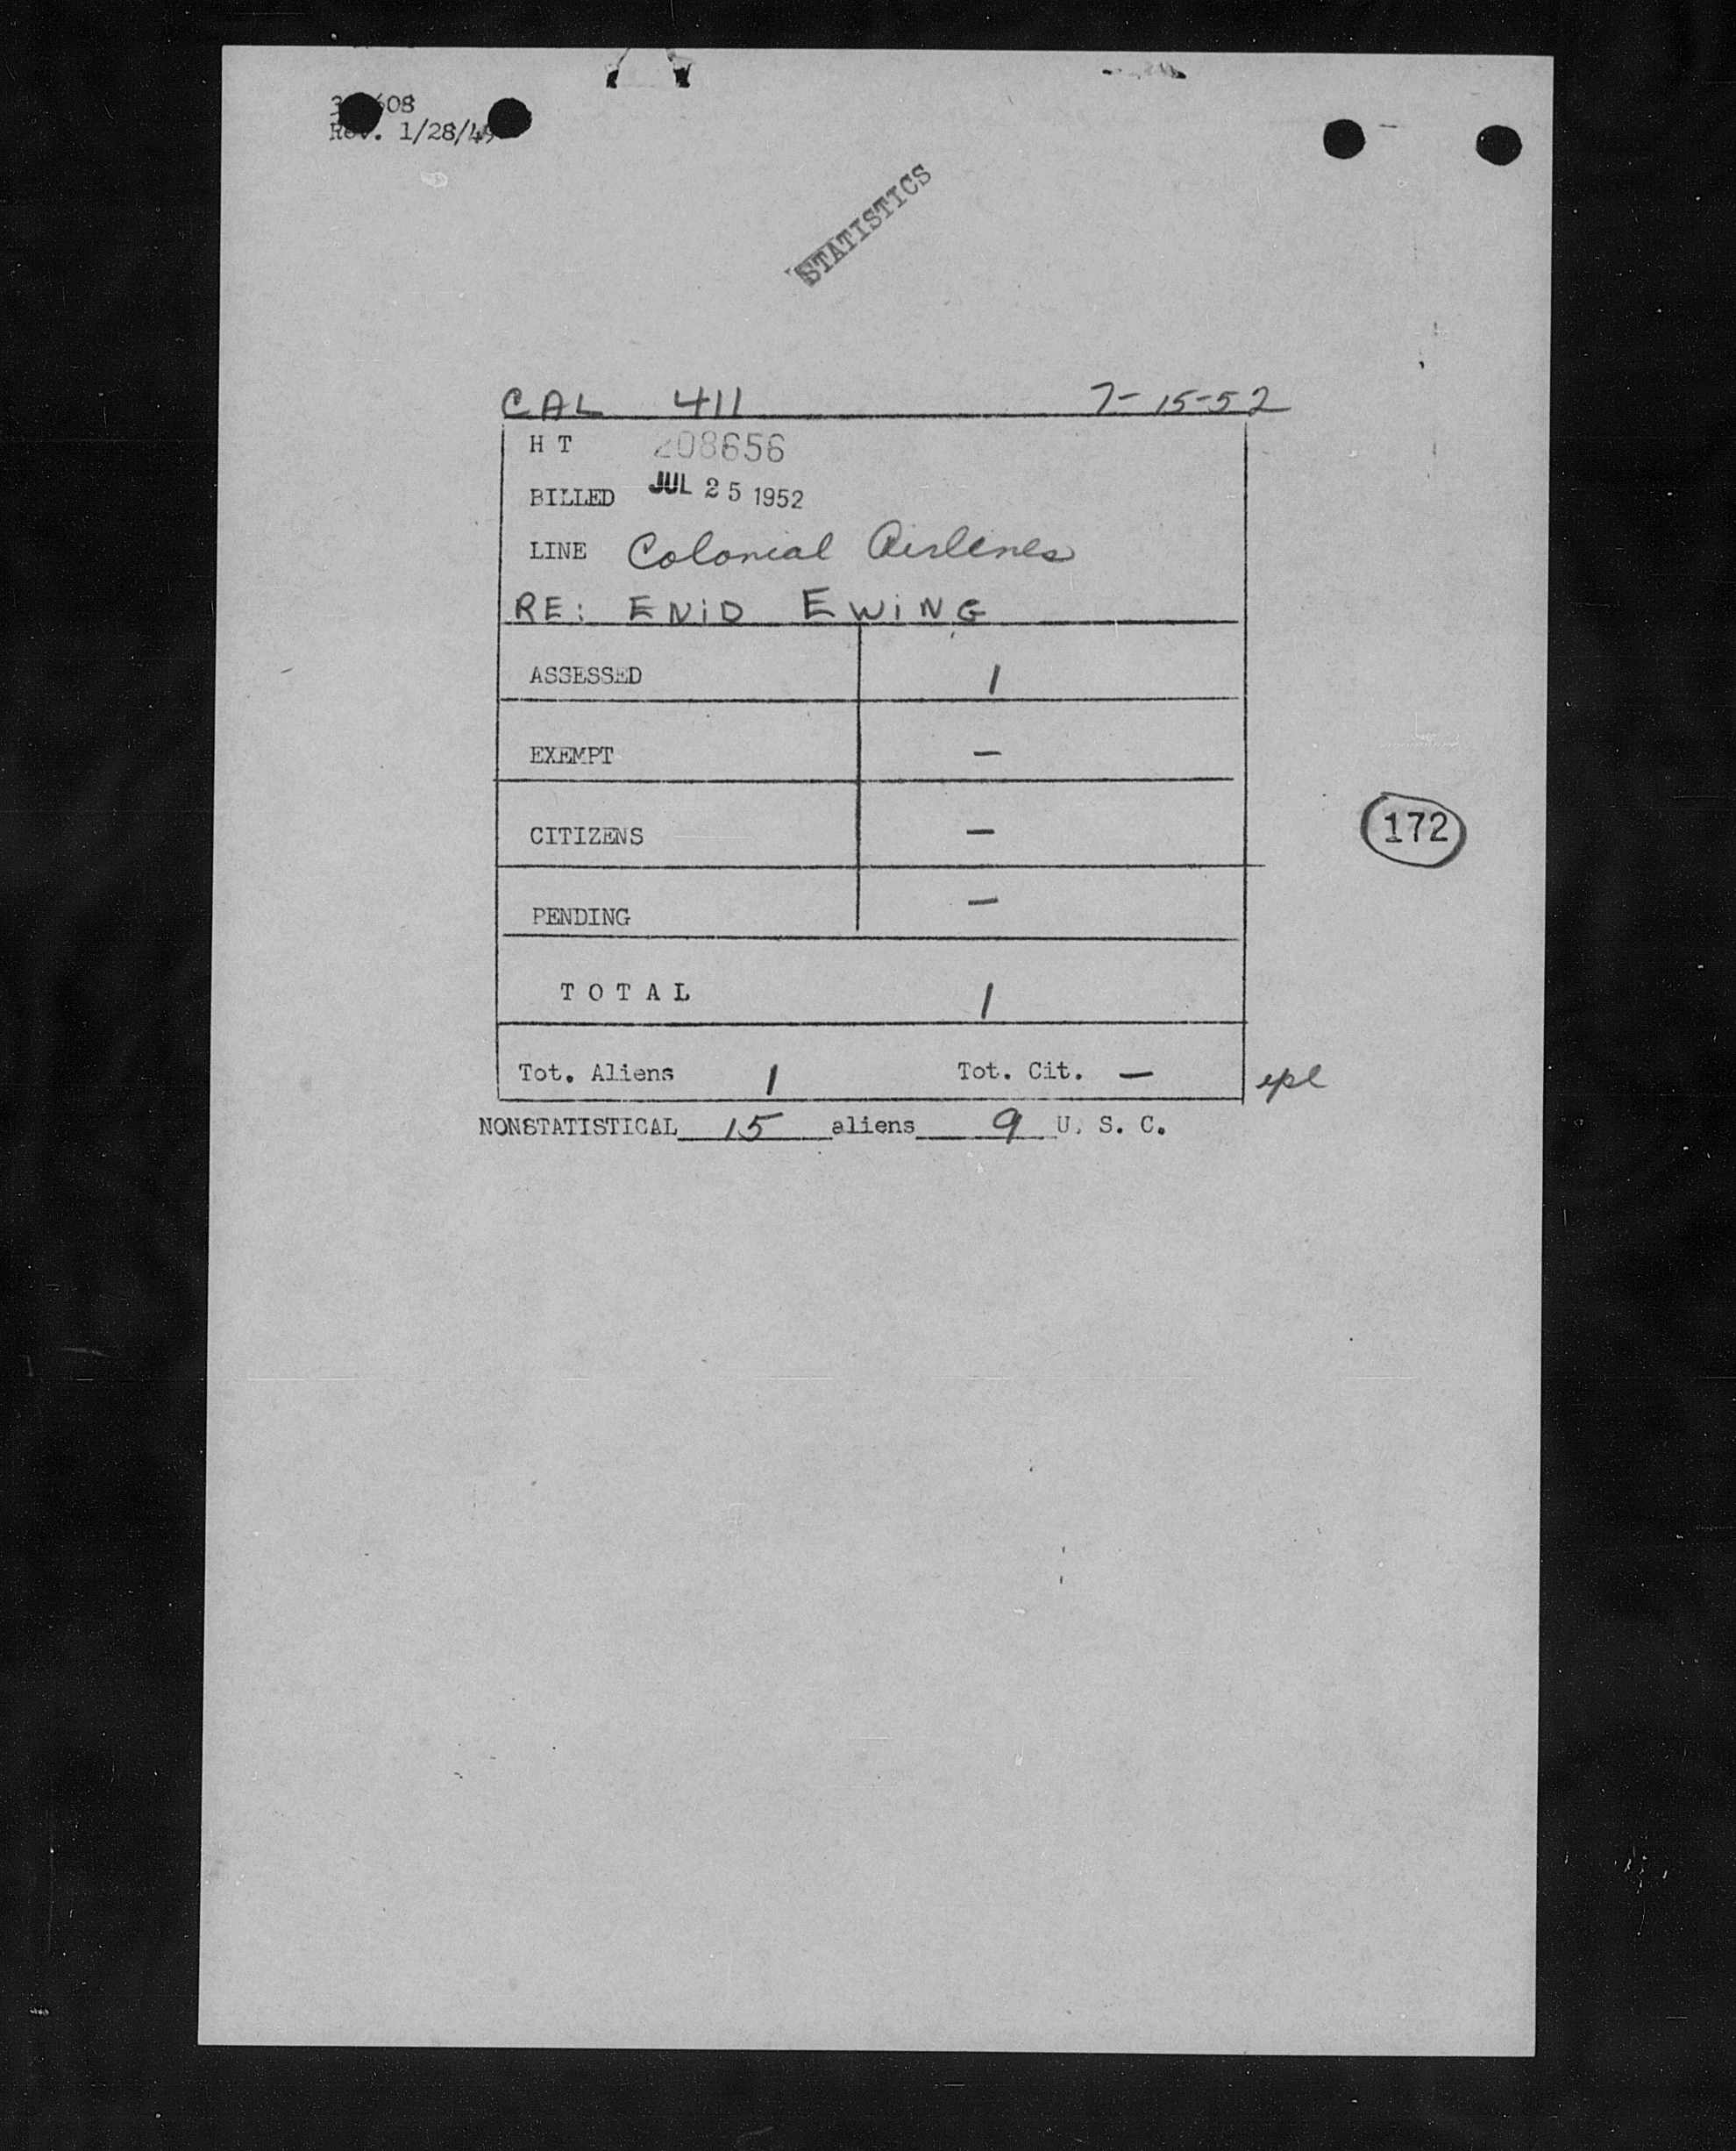 608
Rev. 1/28/49
STATISTICS
CAL 411 7-15-52
H T 208656
BILLED JUL 25 1952
LINE Colonial Airlines
RE: ENID EWING
ASSESSED 1
EXEMPT —
CITIZENS —
172
PENDING —
T O T A L 1
Tot. Aliens 1 Tot. Cit. —
NONSTATISTICAL 15 aliens 9 U. S. C.